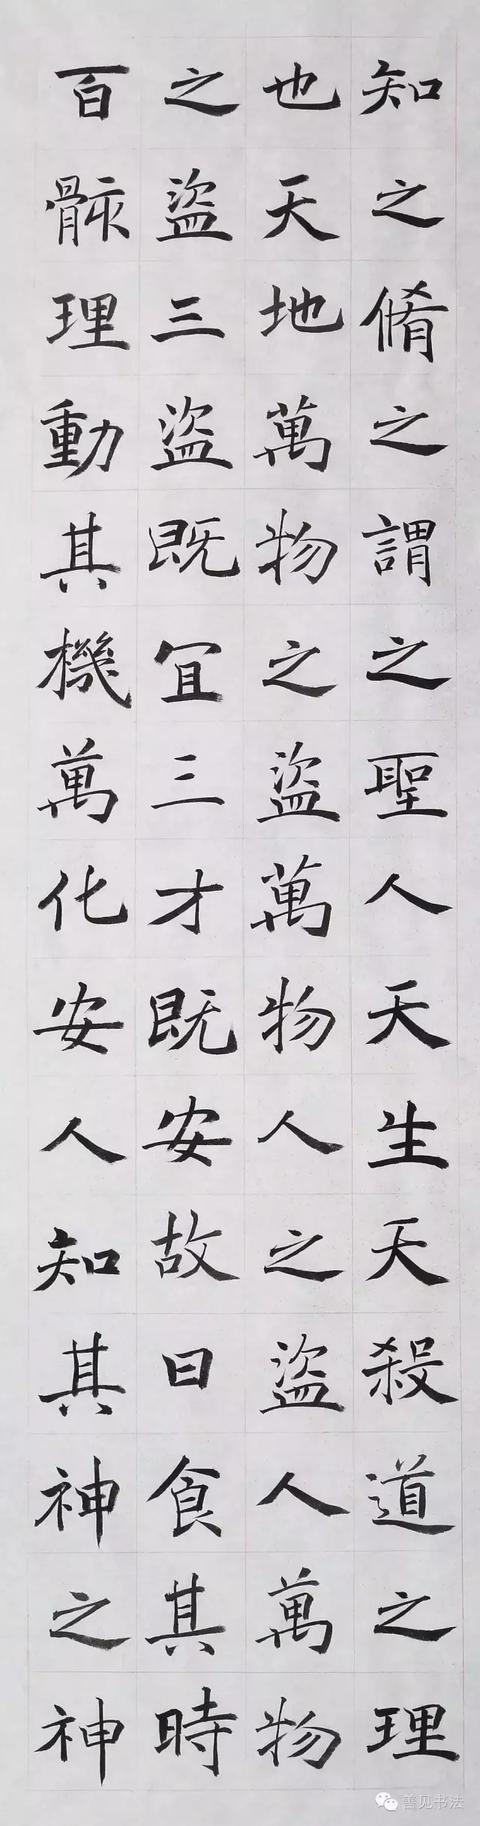 知之脩之謂之聖人天生天殺道之理
也天地萬物之盜萬物人之盜人萬物
之盜三盜既宜三才既安故曰食其時
百骸理動其機萬化安人知其神之神
善见书法